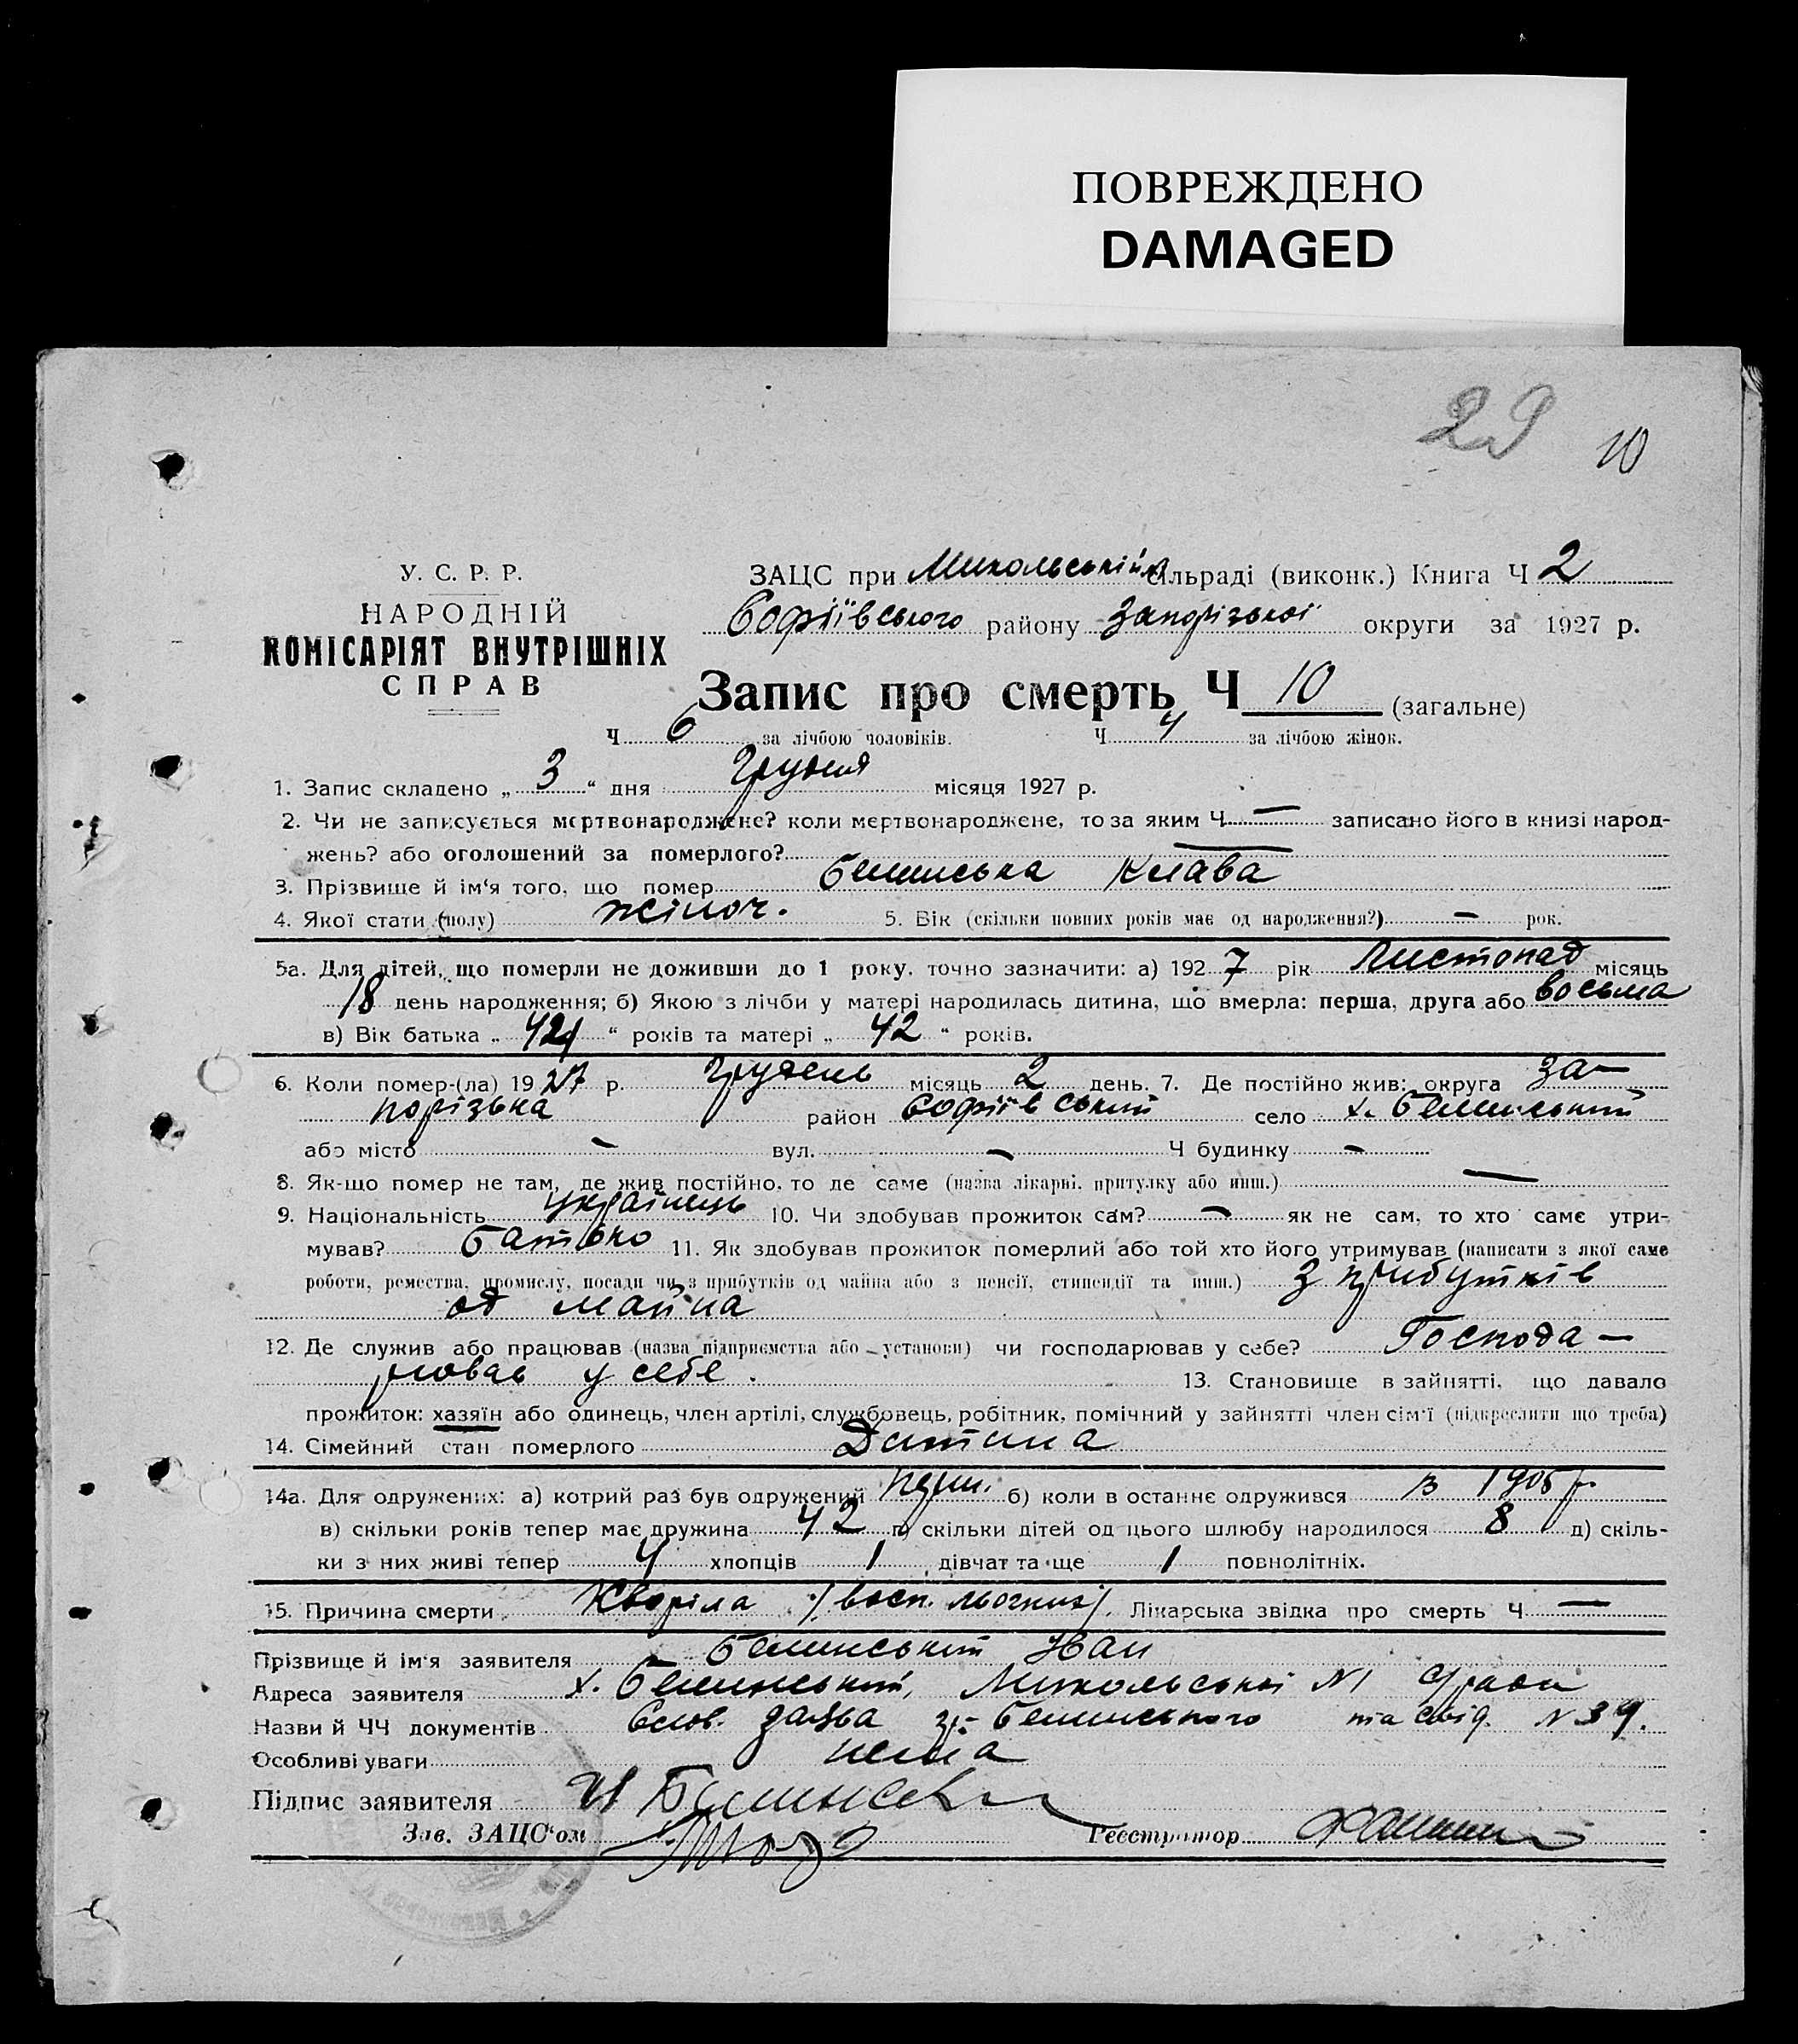 ПОВРЕЖДЕНО
DAMAGED
29 10
У. С. Р. Р.
НАРОДНІЙ
КОМІСАРІЯТ ВНУТРІШНІХ
СПРАВ
ЗАЦС при Микольській сільраді (виконк.) Книга Ч 2
Софіївського району Запорізької округи за 1927 р.
Запис про смерть Ч 10 (загальне)
Ч 6 за лічбою чоловіків. Ч 4 за лічбою жінок.
1. Запис складено „ 3 “ дня Грудня місяця 1927 р.
2. Чи не записується мертвонароджене? коли мертвонароджене, то за яким Ч — записано його в книзі народ-
жень? або оголошений за померлого? —
3. Прізвище й ім‘я того, що помер Белинська Клава
4. Якої стати (полу) жіноч. 5. Вік (скільки повних років має од народження?) — рок.
5а. Для дітей, що померли не доживши до 1 року, точно зазначити: а) 192 7 рік Листопад місяць
18 день народження; б) Якою з лічби у матері народилась дитина, що вмерла: перша, друга або восьма
в) Вік батька „ 42 “ років та матері „ 42 “ років.
6. Коли помер-(ла) 19 27 р. Грудень місяць 2 день. 7. Де постійно жив: округа За-
порізька район Софіївський село х. Белинський
або місто — вул. — Ч будинку —
8. Як-що помер не там, де жив постійно, то де саме (назва лікарні, притулку або инш.) —
9. Національність українець 10. Чи здобував прожиток сам? — як не сам, то хто саме утри-
мував? батько 11. Як здобував прожиток померлий або той хто його утримував (написати з якої саме
роботи, ремества, промислу, посади чи з прибутків од майна або з пенсії, стипендії та инш.) З прибутків
од майна
12. Де служив або працював (назва підприємства або установи) чи господарював у себе? Господа-
рював у себе. 13. Становище в зайнятті, що давало
прожиток: хазяїн або одинець, член артілі, службовець, робітник, помічний у зайнятті член сім‘ї (підкреслити що треба)
14. Сімейний стан померлого Дитина
14а. Для одружених: а) котрий раз був одружений перш. б) коли в останнє одружився в 1905 р.
в) скільки років тепер має дружина 42 г) скільки дітей од цього шлюбу народилося 8 д) скіль-
ки з них живі тепер 4 хлопців 1 дівчат та ще 1 повнолітніх.
15. Причина смерти Хворіла (восп. льогких). Лікарська звідка про смерть Ч —
Прізвище й ім‘я заявителя Белинський Іван
Адреса заявителя х. Белинський, Микольської №1 С/ради
Назви й ЧЧ документів Слов. заява гр. Белинського та свід. № 39.
Особливі уваги нема
Підпис заявителя И Белински
Зав. ЗАЦС‘ом
Реєстратор